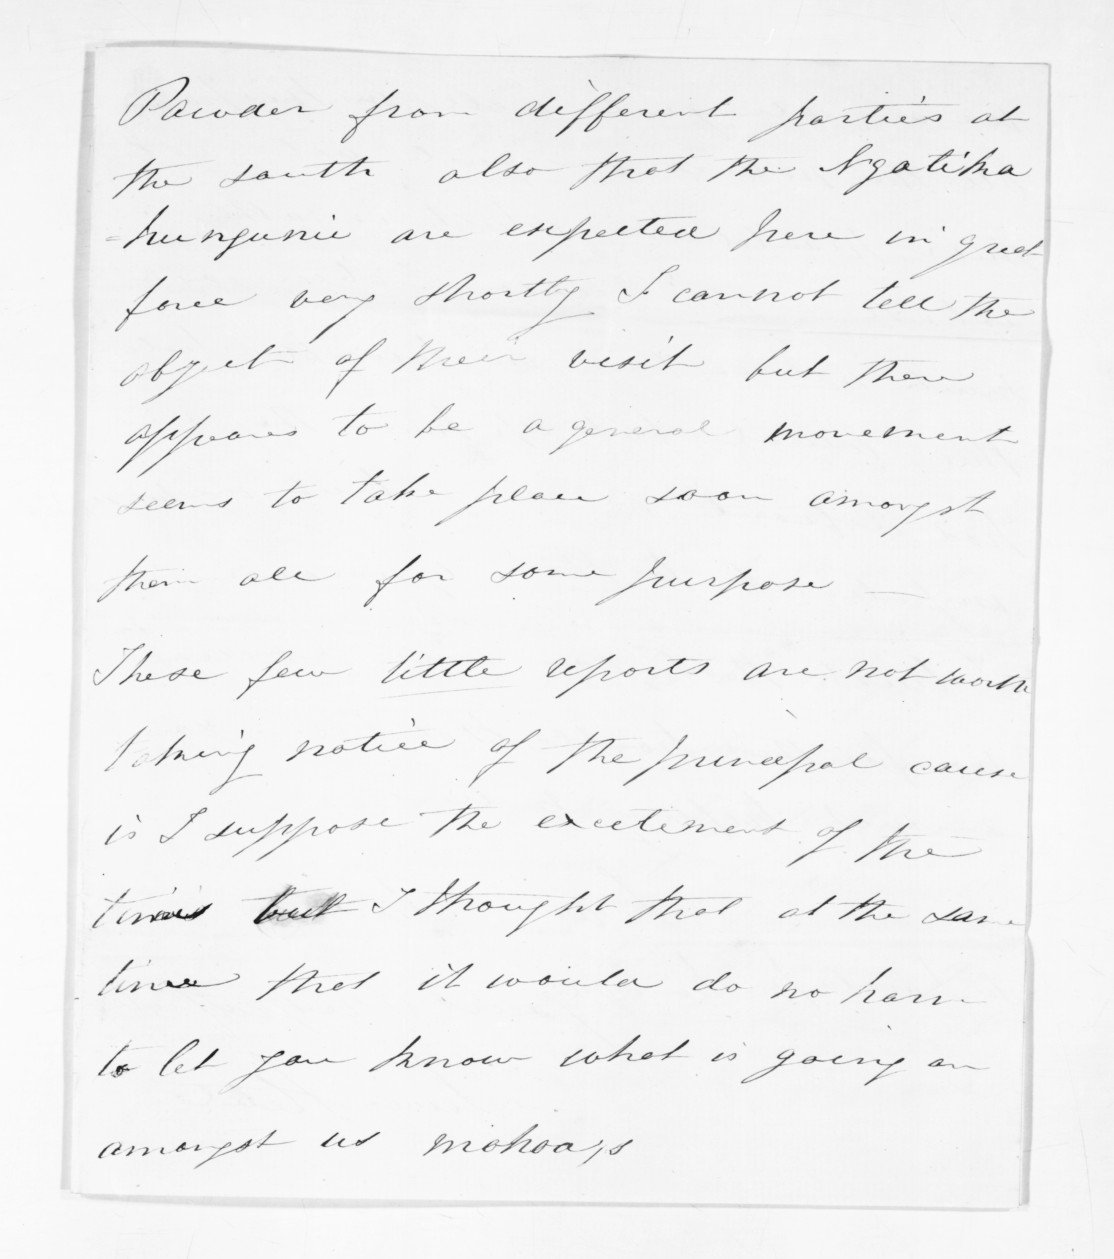 Powder from different parties at
the south also that the Ngatika
=hungunie are expected here in great
force very shortly I cannot tell the
object of their visit but there
appears to be a general movement
seems to take place soon amongst
them all for some purpose —
These few little reports are not worth
taking notice of the principal cause
is I suppose the excitement of the
times but I thought that at the same
time that it would do no harm
to let you know what is going on
amongst us mohoa,s